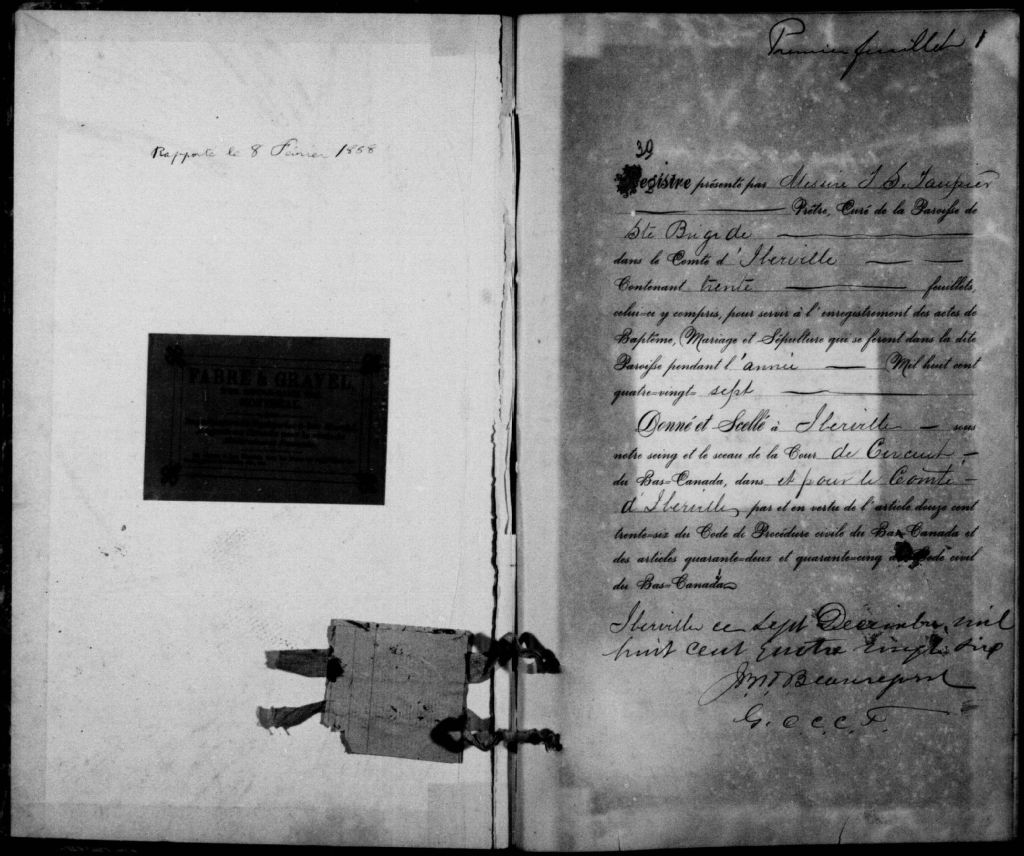 Rapporté le 8 Février 1888
FABRE & GRAVEL
Premier feuillet 1
39
Registre présenté par Messire J
Prêtre, Curé de la Paroisse de
Ste Brigide
dans le Comté d'Iberville
Contenant trente feuillets,
celui-ci y compris, pour servir à l'enregistrement des actes de
Baptême, Mariage et Sépulture qui se feront dans la dite
Paroisse pendant l'année Mil huit cent
quatre-vingt- sept
Donné et Scellé à Iberville sous
notre seing et le sceau de la Cour de Circuit,
du Bas-Canada, dans et pour le Comté
d'Iberville, par et en vertu de l'article douze cent
trente-six du Code de Procédure civile du Bas-Canada et
des articles quarante-deux et quarante-cinq du Code civil
du Bas-Canada
Iberville ce sept Décembre mil
huit cent quatre vingt six
Beauregard
G. C. C. C.